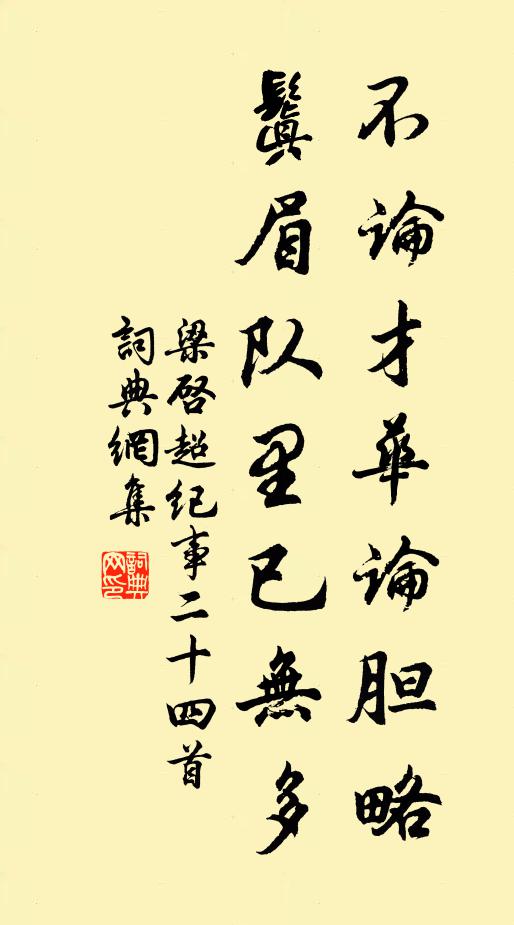 不論才華論胆略
鬒眉队里已無多
梁啓超纪事二十四首
詞典網集
詞典网印